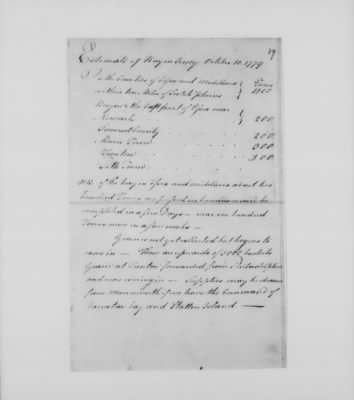 Estimate of Hay in Jersey October 10. 1779
19
In the Counties of Essex and Middlesex } Tons
within ten Miles of Scotch plains } 1700
Bergen & the East part of Essex near }
Newark } 200
Somerset County 200
Morris Town 300
Trenton 300
Total Tons
NB. of the hay in Essex and middlesex about two
hundred Tons are pressed, remainder will be
compleated in a few Days — near one hundred
Tons more in a few weeks —
Grain not yet collected but begins to
come in — There are upwards of 3000 bushels
Grain at Trenton forwarded from Philadelphia
and more coming in — Supplies may be drawn
from monmouth if we have the Command of
Raratan bay and Statten Island —